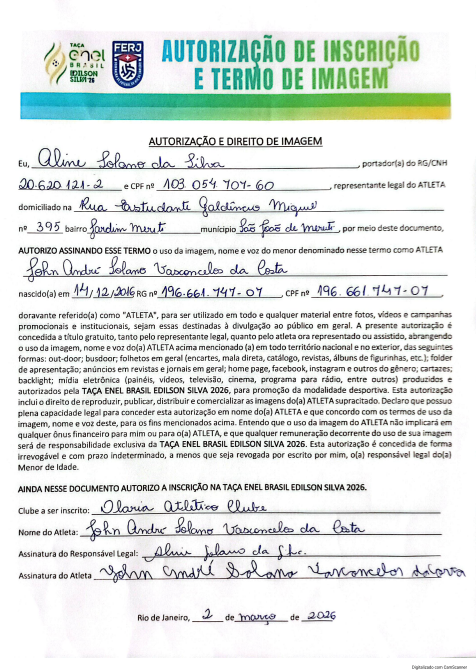 TAÇA
enel
BRASIL
EDILSON
SILVA'26
FERJ
AUTORIZAÇÃO DE INSCRIÇÃO
E TERMO DE IMAGEM
AUTORIZAÇÃO E DIREITO DE IMAGEM
Eu, Aline Solano da Silva, portador(a) do RG/CNH
20.620.121-2 e CPF nº 103 054 707-60, representante legal do ATLETA
domiciliado na Rua Estudante Galdêncio Miguel
nº 395 bairro Jardim Meriti município São João de Meriti, por meio deste documento,
AUTORIZO ASSINANDO ESSE TERMO o uso da imagem, nome e voz do menor denominado nesse termo como ATLETA
John André Solano Vasconcelos da Costa
nascido(a) em 14/12/2016 RG nº 196.661.747-07, CPF nº 196.661 747-07,
doravante referido(a) como "ATLETA", para ser utilizado em todo e qualquer material entre fotos, vídeos e campanhas
promocionais e institucionais, sejam essas destinadas à divulgação ao público em geral. A presente autorização é
concedida a título gratuito, tanto pelo representante legal, quanto pelo atleta ora representado ou assistido, abrangendo
o uso da imagem, nome e voz do(a) ATLETA acima mencionado (a) em todo território nacional e no exterior, das seguintes
formas: out-door; busdoor; folhetos em geral (encartes, mala direta, catálogo, revistas, álbuns de figurinhas, etc.); folder
de apresentação; anúncios em revistas e jornais em geral; home page, facebook, instagram e outros do gênero; cartazes;
backlight; mídia eletrônica (painéis, vídeos, televisão, cinema, programa para rádio, entre outros) produzidos e
autorizados pela TAÇA ENEL BRASIL EDILSON SILVA 2026, para promoção da modalidade desportiva. Esta autorização
inclui o direito de reproduzir, publicar, distribuir e comercializar as imagens do(a) ATLETA supracitado. Declaro que possuo
plena capacidade legal para conceder esta autorização em nome do(a) ATLETA e que concordo com os termos de uso da
imagem, nome e voz deste, para os fins mencionados acima. Entendo que o uso da imagem do ATLETA não implicará em
qualquer ônus financeiro para mim ou para o(a) ATLETA, e que qualquer remuneração decorrente do uso de sua imagem
será de responsabilidade exclusiva da TAÇA ENEL BRASIL EDILSON SILVA 2026. Esta autorização é concedida de forma
irrevogável e com prazo indeterminado, a menos que seja revogada por escrito por mim, o(a) responsável legal do(a)
Menor de Idade.
AINDA NESSE DOCUMENTO AUTORIZO A INSCRIÇÃO NA TAÇA ENEL BRASIL EDILSON SILVA 2026.
Clube a ser inscrito: Olaria Atlético Clube
Nome do Atleta: John André Solano Vasconcelos da Costa
Assinatura do Responsável Legal: Aline Solano da
Assinatura do Atleta John André Solano Vasconcelos
Rio de Janeiro, 2 de março de 2026
Digitalizado com CamScanner